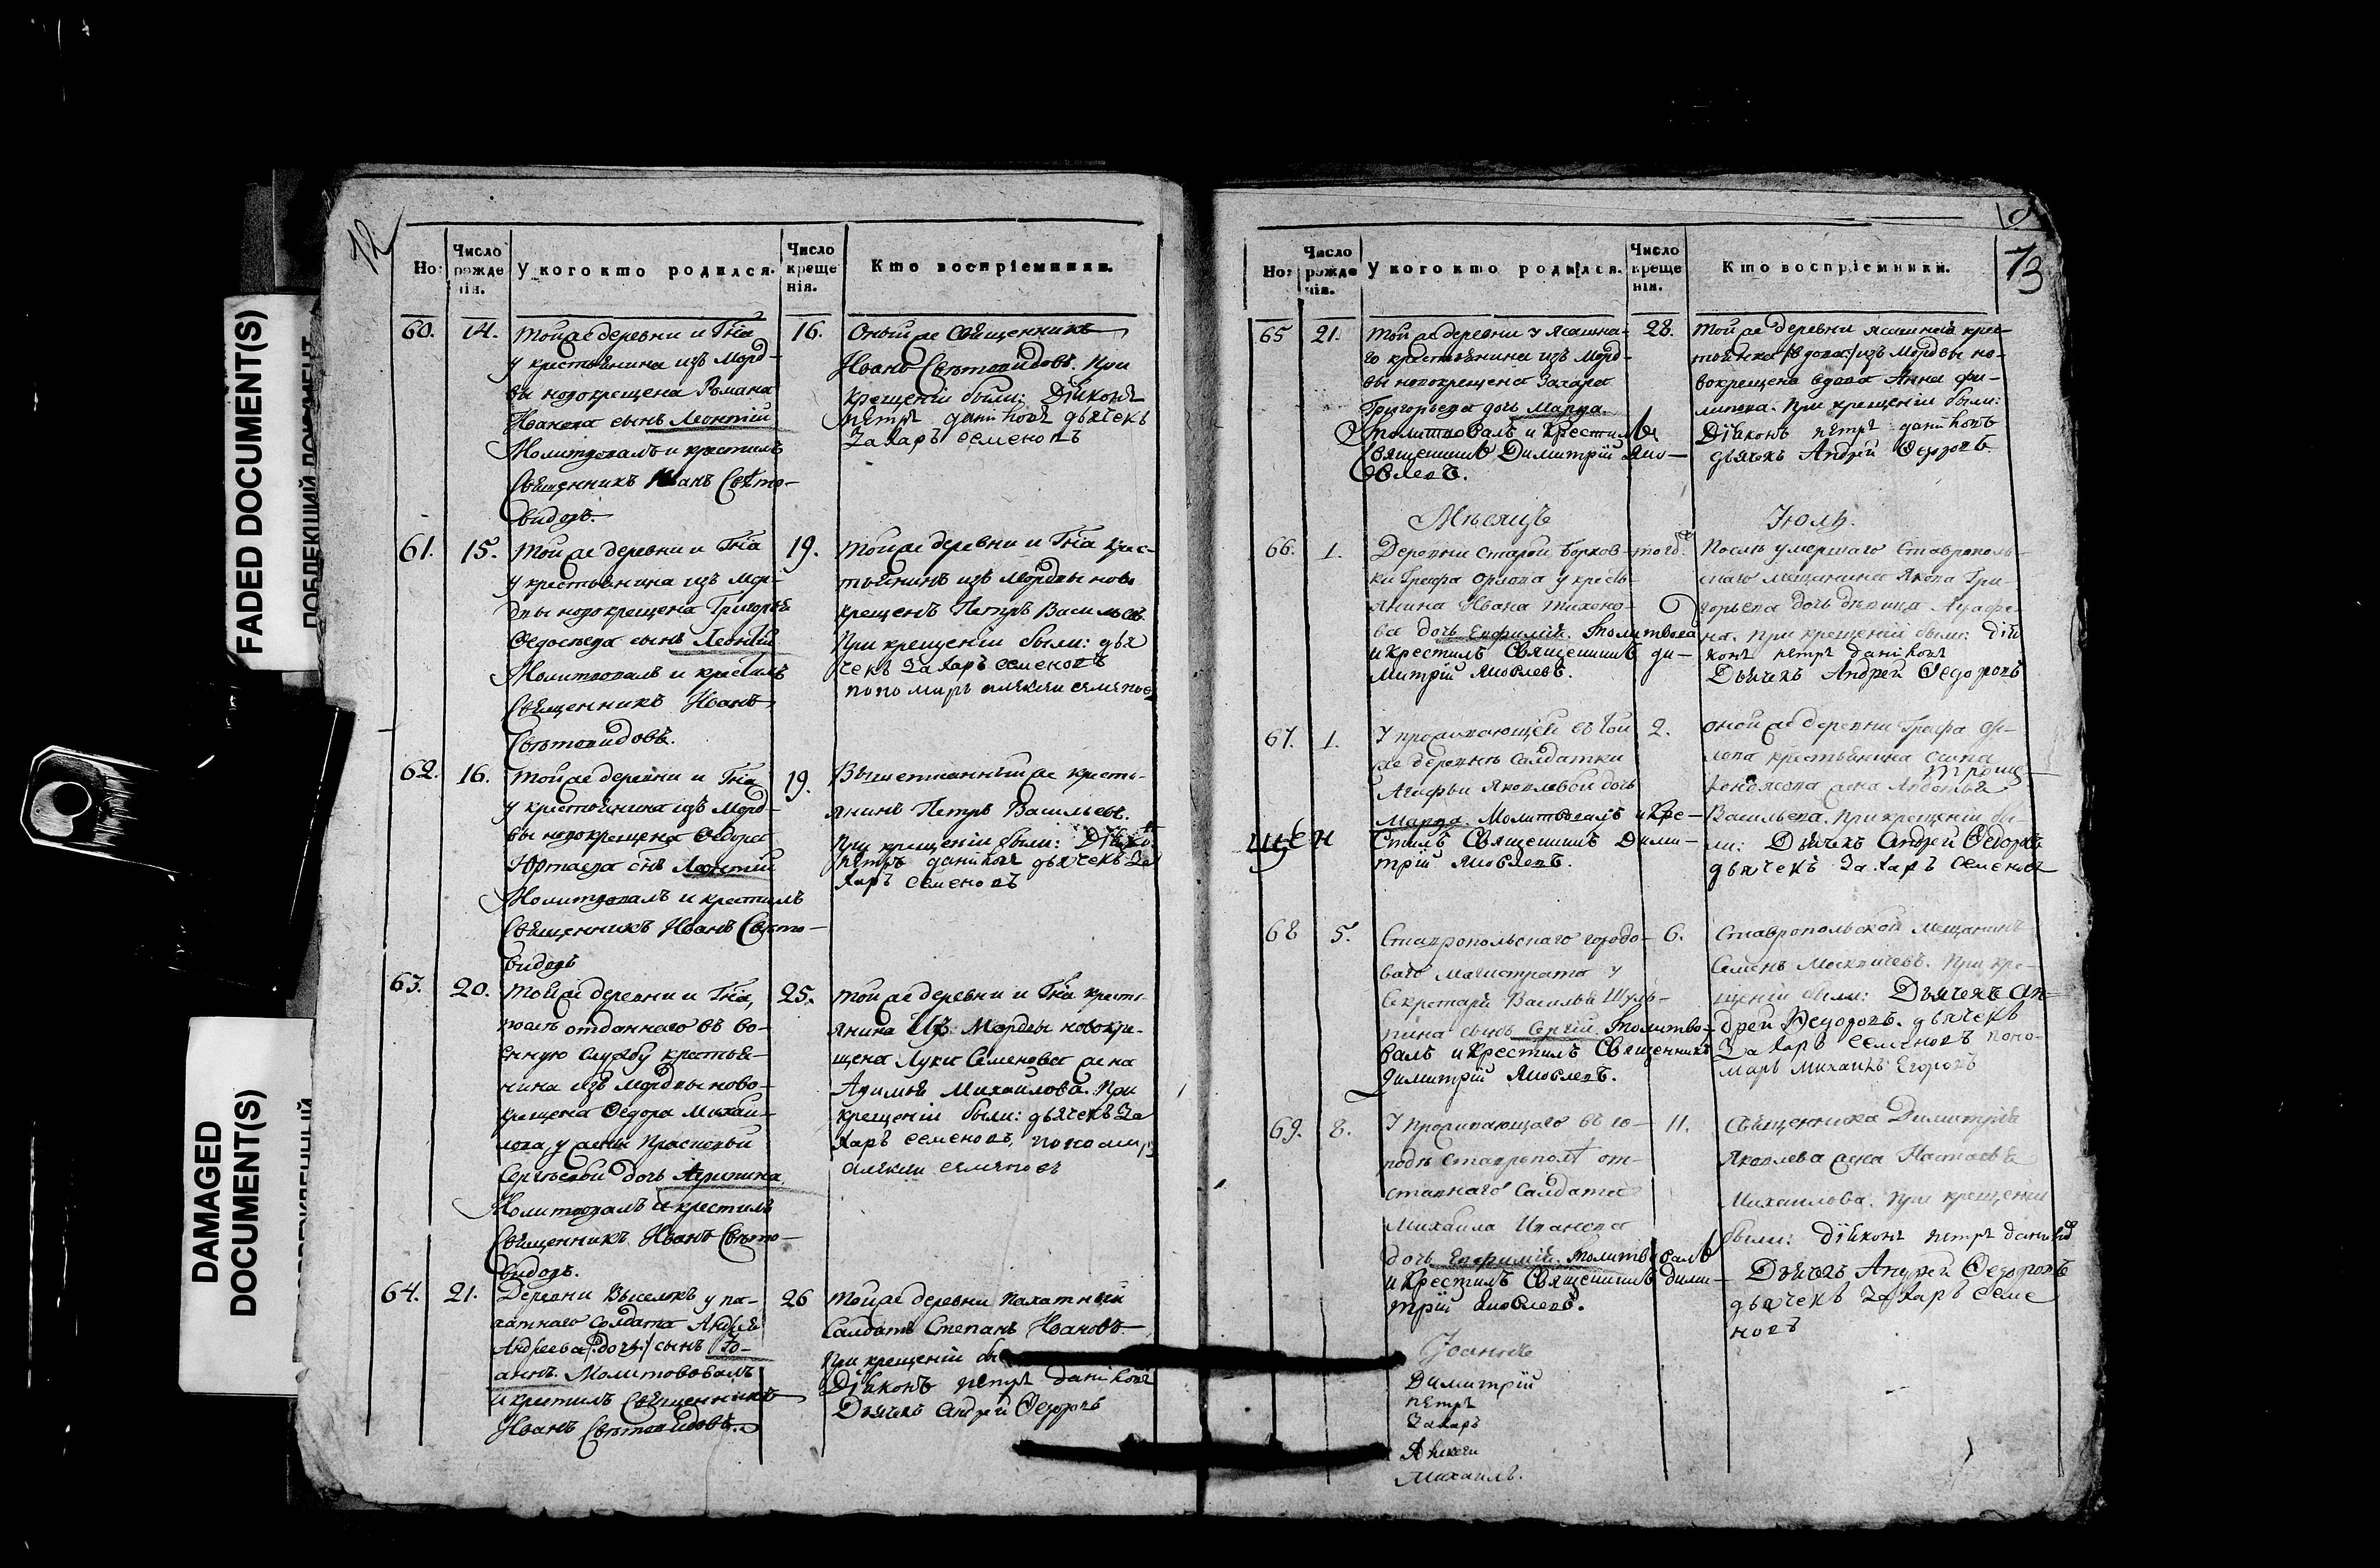 FADED DOCUMENT(S)
DAMAGED
DOCUMENT(S)
72
Но:
Число рожденія.
У кого кто родился.
Число крещенія.
Кто воспріемники.
60. 14.
Тойже деревни и Гна
у крестьянина изъ Морд-
вы новокрещена Романа
Иванова сынъ Леонтій
Молитвовалъ и крестилъ
Священникъ Иванъ Свѣто-
видовъ.
16.
Оныйже Священникъ
Иванъ Свѣтовидовъ. При
крещеніи были: Діяконъ
петръ даниловъ дьячекъ
Захаръ семеновъ
61. 15.
Тойже деревни и Гна
у крестьянина изъ Мор-
двы новокрещена Григорья
Федосѣева сынъ Леонтій
Молитвовалъ и крестилъ
Священникъ Иванъ
Свѣтовидовъ.
19.
Тойже деревни и Гна крес-
тьянинъ изъ Мордвы ново
крещенъ Петръ Васильевъ.
При крещеніи были: дья
чекъ Захаръ семеновъ
пономаръ алексѣи семеновъ
62. 16.
Тойже деревни и Гна
у крестьянина изъ Морд-
вы новокрещена Федора
сынъ Леонтій
Молитвовалъ и крестилъ
Священникъ Иванъ Свѣто-
видовъ
19.
Вышеписанныйже кресть-
янинъ Петръ Васильевъ.
При крещеніи были: Діяко
петръ даниловъ дьячекъ За
харъ семеновъ
63. 20.
Тойже деревни и Гна,
послѣ отданнаго въ во-
енную службу крестья-
нина изъ мордвы ново-
крещена Федора Михай-
лова, у жены Прасковьи
Сергѣевой дочь Агрипина
Молитвовалъ и крестилъ
Священникъ Иванъ Свѣто-
видовъ.
25.
Тойже деревни и Гна кресть-
янина Изъ Мордвы новокре-
щена Луки Семенова жена
Михайлова. При
крещеніи были: дьячекъ За
харъ семеновъ, пономаръ
алексѣи семеновъ
64. 21.
Деревни Выселокъ у па-
хатнаго солдата Андрея
Андреева /:дочь:/ сынъ Іо-
аннъ. Молитвовалъ
и крестилъ Священникъ
Иванъ Свѣтовидовъ.
26
Тойже деревни Пахатный
Салдатъ Степанъ Ивановъ.
При крещеніи
Діяконъ петръ даниловъ
Дьячекъ Андрей Федоровъ
73
Но:
Число рожденія.
У кого кто родился.
Число крещенія.
Кто воспріемники.
65 21.
Тойже деревни у Ясашна-
го крестьянина изъ Морд-
вы новокрещена Захара
Григорьева дочь Марѳа.
Молитвовалъ и Крестилъ
Священникъ Димитрій Яко-
влевъ.
28.
Тойже деревни ясашная крес-
тьянка /:вдова:/ изъ Мордвы но-
вокрещена вдова Анна Фи-
липова. При крещеніи были:
Діяконъ петръ даниловъ
дьячекъ Андрей Федоровъ.
Мѣсяцъ Іюль.
66. 1.
Деревни Старой Борков-
ки Графа Орлова у кресть-
янина Ивана Тихоно-
ва дочь Евфимія. Молитвова
и Крестилъ Священникъ Ди-
митрій Яковлевъ.
тогоже
Послѣ умершаго Ставрополь-
скаго мещанина Якова Гри-
горьева дочь дѣвица Агафе-
на. При крещеніи были: Дія
конъ петръ даниловъ
Дьячекъ Андрей Федоровъ
67. 1.
У проживающей въ той
же деревнѣ Салдатки
Агафьи Яковлевой дочь
Марѳа. Молитвовалъ и Кре-
стилъ Священникъ Дими-
трій Яковлевъ.
щен
2.
Онойже деревни Графа Ор-
лова крестьянина
жена Авдотья
Васильева. При крещеніи бы-
ли: Дьячекъ Андрей Федоровъ
дьячекъ Захаръ семеновъ
68 5.
Ставропольскаго городо-
ваго Магистрата у
Секретаря Василья Шуль-
гина сынъ Сергій. Молитво-
валъ и Крестилъ Священникъ
Димитрій Яковлевъ.
6.
Ставропольской мещанинъ
Семенъ Москвичевъ. При кре-
щеніи были: Дьячекъ Ан-
дрей Федоровъ. дьячекъ
Захаръ семеновъ поно-
маръ Михаилъ Егоровъ
69. 8.
У проживающаго въ го-
родѣ Ставрополѣ от-
ставнаго Салдата
Михайла Иванова
дочь Евфимія. Молитвовалъ
и Крестилъ Священникъ Дими-
трій Яковлевъ.
11.
Священника Димитрія
Яковлева жена Настасья
Михайлова. При крещеніи
были: діяконъ петръ данилов
Дьячекъ Андрей Федоровъ
дьячекъ Захаръ семе
новъ
Іоаннъ
Димитрій
петръ
Захаръ
Алексѣи
Михаилъ.